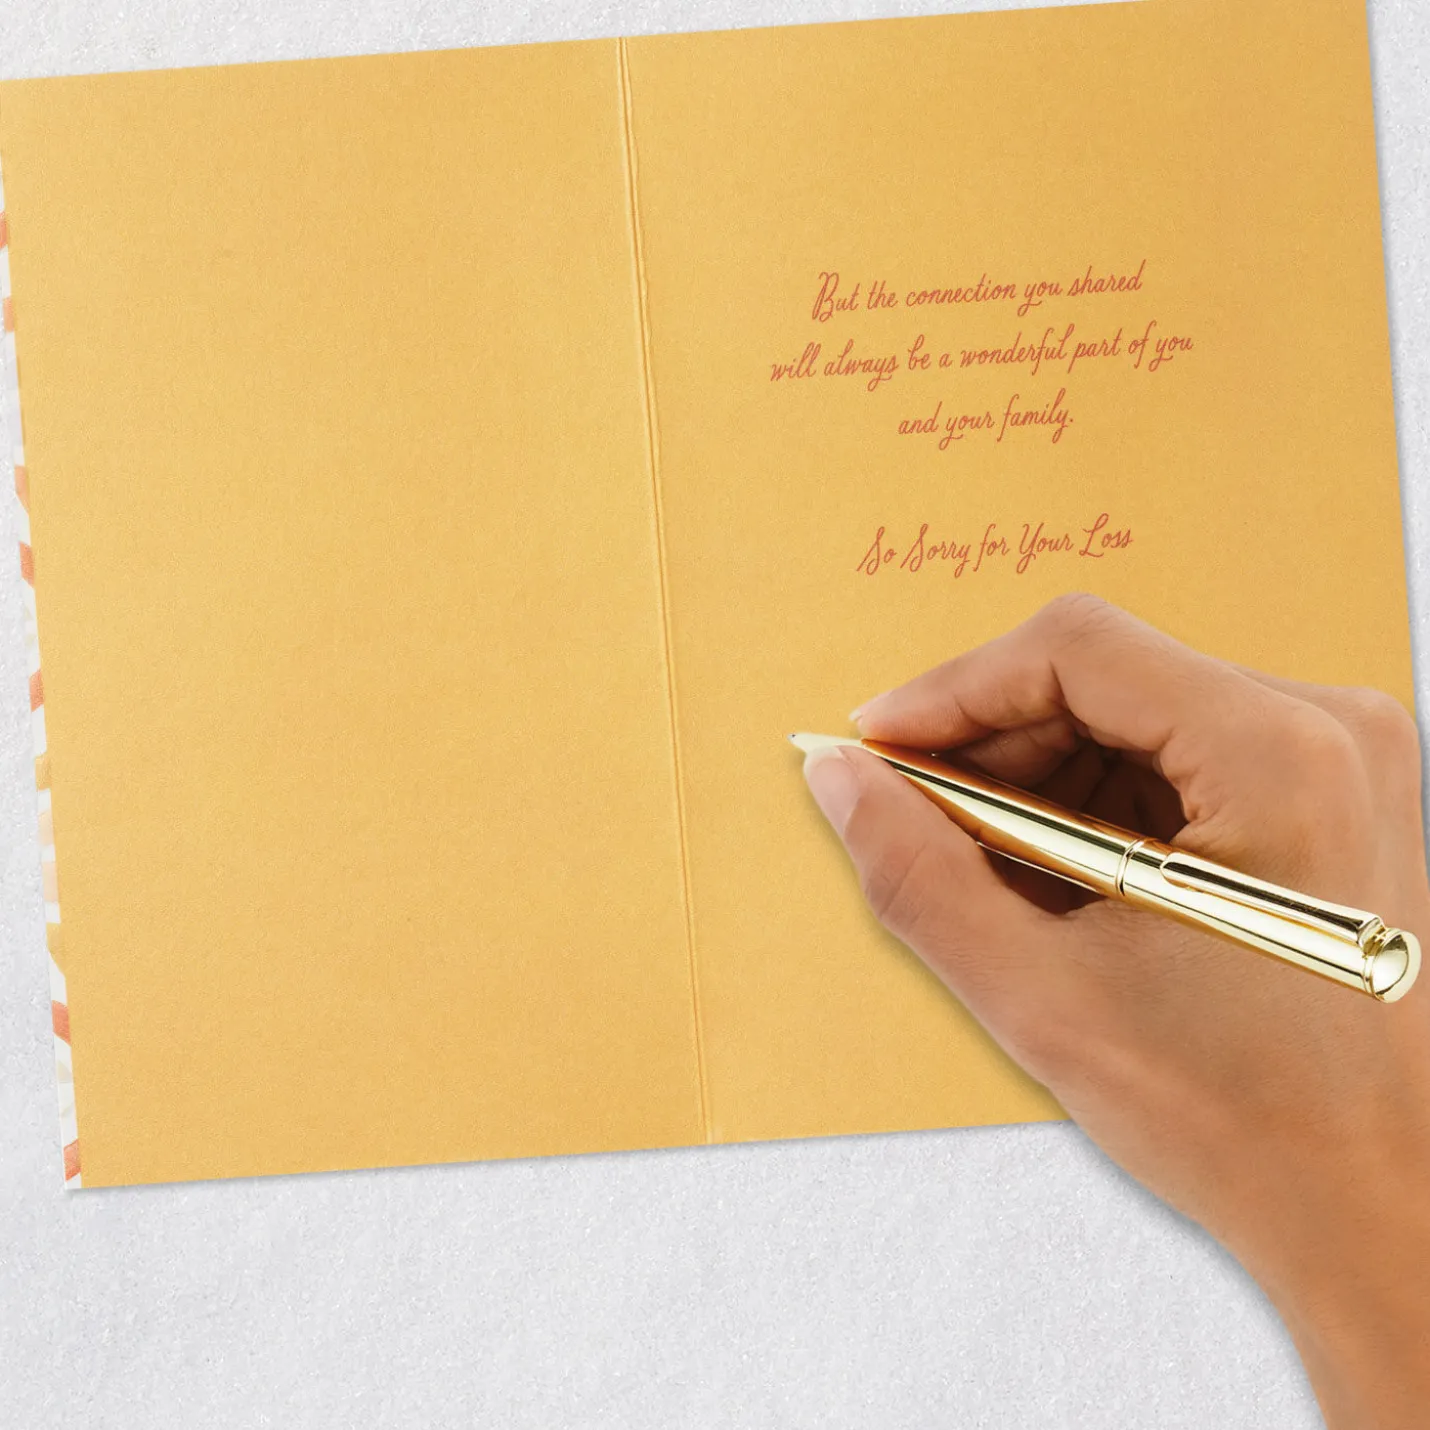 But the connection you shared
will always be a wonderful part of you
and your family.
So Sorry for Your Loss